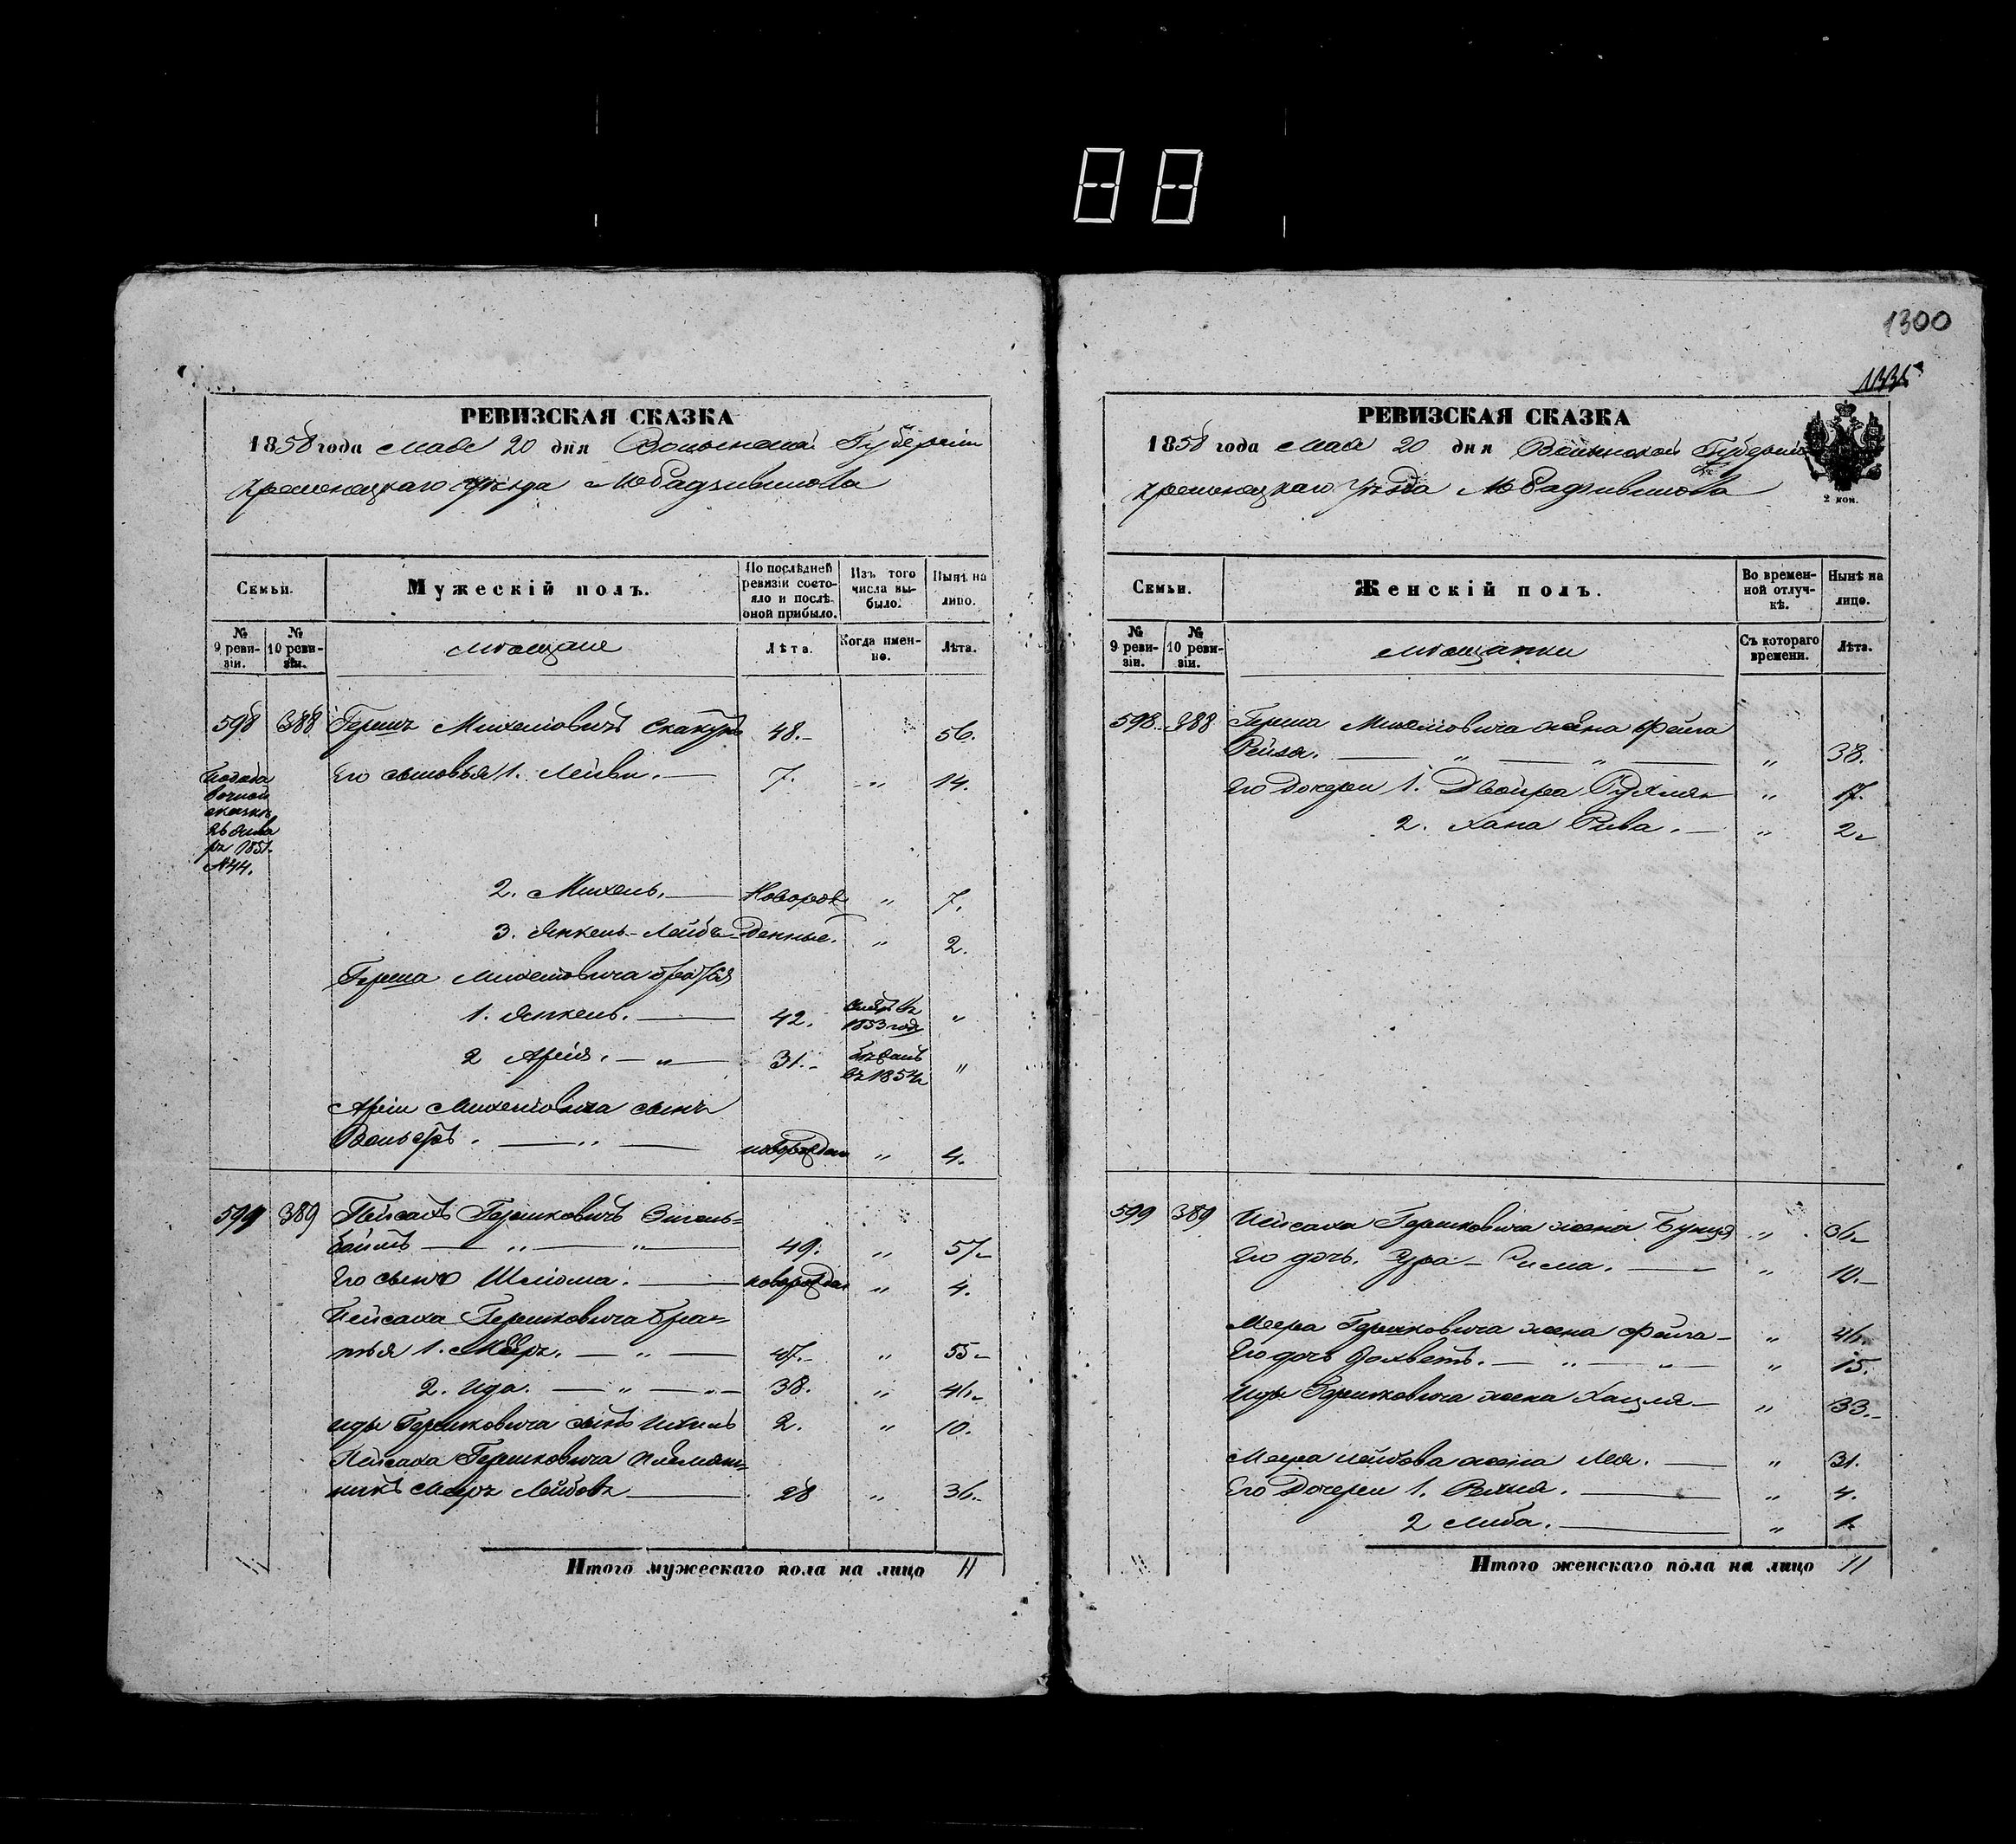 1300
1335
РЕВИЗСКАЯ СКАЗКА
1858 года Мая 20 дня Волынской Губерніи
Кременецкаго Уѣзда М. Радзивилова
Семьи.
Мужескій полъ.
По послѣдней ревизіи состояло и послѣ оной прибыло.
Изъ того числа выбыло.
Нынѣ на лицо.
№ 9 ревизіи.
№ 10 ревизіи.
Мѣщане
Лѣта.
Когда именно.
Лѣта.
598 388 Гершъ Михелiовичъ Скакунъ 48. 56.
Его сыновья 1. Лейви. 7. " 14.
сказкѣ
1851
№ 44.
2. Михель. Новорож " 7.
3. Янкель-Лейбъ денные. " 2.
Герша Михелiовича братья
1. Янкель. 42. 1853 году "
2 Арія. " 31. въ 1854 "
Аріи Михелiовича сынъ
" новорожден " 4.
599 389 Пейсахъ Гершковичъ Эйтель=
боймъ " " 49. " 57
Его сынъ Шлiома. новорожден " 4.
Пейсаха Гершковича бра=
тья 1. Меэръ. " 47. " 55
2. Ида. " " 38. " 46
Иды Гершковича сынъ Ихиль 2. " 10.
Пейсаха Гершковича племян=
никъ Меэръ Лейбовъ 28 " 36
Итого мужескаго пола на лицо 11
РЕВИЗСКАЯ СКАЗКА
1858 года Мая 20 дня Волынской Губерніи
Кременецкаго Уѣзда М. Радзивилова
2 коп.
Семьи.
Женскій полъ.
Во временной отлучкѣ.
Нынѣ на лицо.
№ 9 ревизіи.
№ 10 ревизіи.
Мѣщанки
Съ котораго времени.
Лѣта.
598 388 Герша Михелiовича жена Фейга
Рейзя. " " " 38.
Его дочери 1. Двойра " 17.
2. Хана Рива. " 2
599 389 Пейсаха Гершковича жена Бунця " 36
Его дочь. " 10.
Меера Гершковича жена Фейга " 46
Его дочь " " " 15.
Иды Гершковича жена Хацля " 33.
Меера Лейбова жена Лея. " 31.
Его Дочери 1. Рехля. " 4.
2 Либа. " 1
Итого женскаго пола на лицо 11